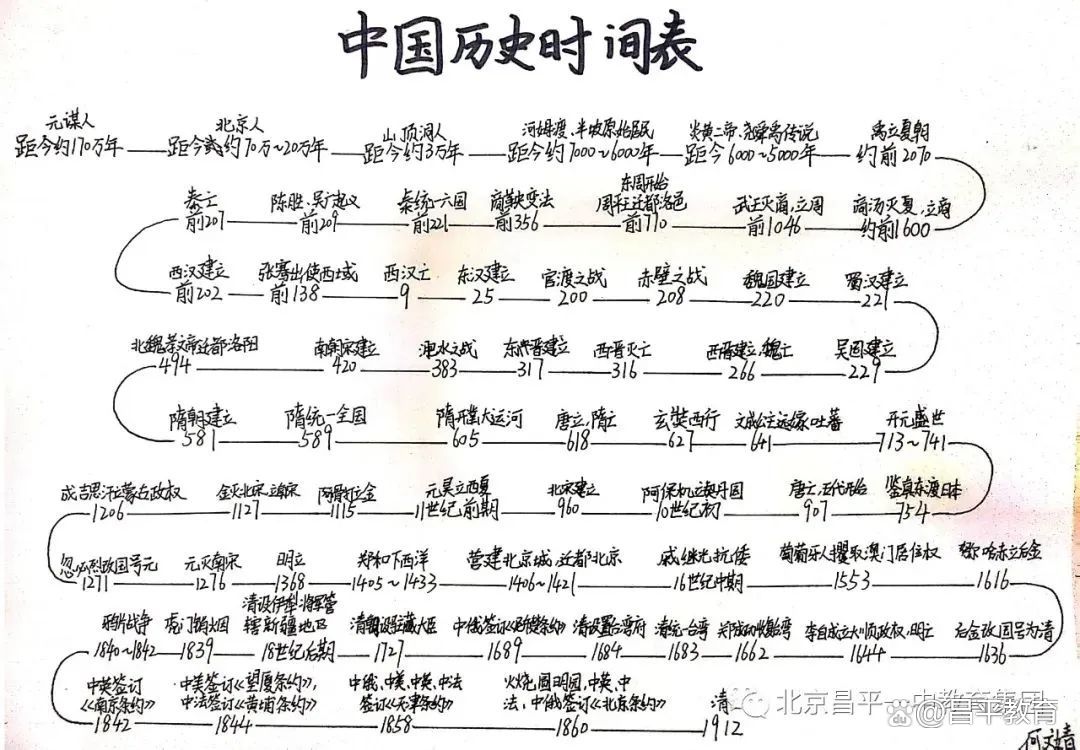 中国历史时间表
元谋人 北京人 山顶洞人 河姆渡、半坡原始居民 炎黄二帝、尧舜禹传说 禹立夏朝
距今约170万年 距今约70万~20万年 距今约3万年 距今约7000~6000年 距今6000~5000年 约前2070
秦亡 陈胜、吴广起义 秦统一六国 商鞅变法 东周开始 周平王迁都洛邑 武王灭商,立周 商汤灭夏,立商
前207 前209 前221 前356 前770 前1046 约前1600
西汉建立 张骞出使西域 西汉亡 东汉建立 官渡之战 赤壁之战 魏国建立 蜀汉建立
前202 前138 9 25 200 208 220 221
北魏孝文帝迁都洛阳 南朝宋建立 淝水之战 东晋建立 西晋灭亡 西晋建立,魏亡 吴国建立
494 420 383 317 316 266 229
隋朝建立 隋统一全国 隋开凿大运河 唐立,隋亡 玄奘西行 文成公主远嫁吐蕃 开元盛世
581 589 605 618 627 641 713~741
成吉思汗立蒙古政权 金灭北宋,立南宋 阿骨打立金 元昊立西夏 北宋建立 阿保机立契丹国 唐亡,五代开始 鉴真东渡日本
1206 1127 1115 11世纪前期 960 10世纪初 907 754
忽必烈改国号元 元灭南宋 明立 郑和下西洋 营建北京城,迁都北京 戚继光抗倭 葡萄牙人攫取澳门居住权 努尔哈赤立后金
1271 1276 1368 1405~1433 1406~1421 16世纪中期 1553 1616
鸦片战争 虎门销烟 清设伊犁将军管 辖新疆地区 清朝设驻藏大臣 中俄签订《尼布楚条约》 清设置台湾府 清统一台湾 郑成功收复台湾 李自成立大顺政权,明亡 后金改国号为清
1840~1842 1839 18世纪后期 1727 1689 1684 1683 1662 1644 1636
中英签订 中美签订《望厦条约》, 中俄、中美、中英、中法 火烧圆明园,中英、中 清
《南京条约》 中法签订《黄埔条约》 签订《天津条约》 法、中俄签订《北京条约》
1842 1844 1858 1860 1912
北京昌平一中教育集团
昌平教育